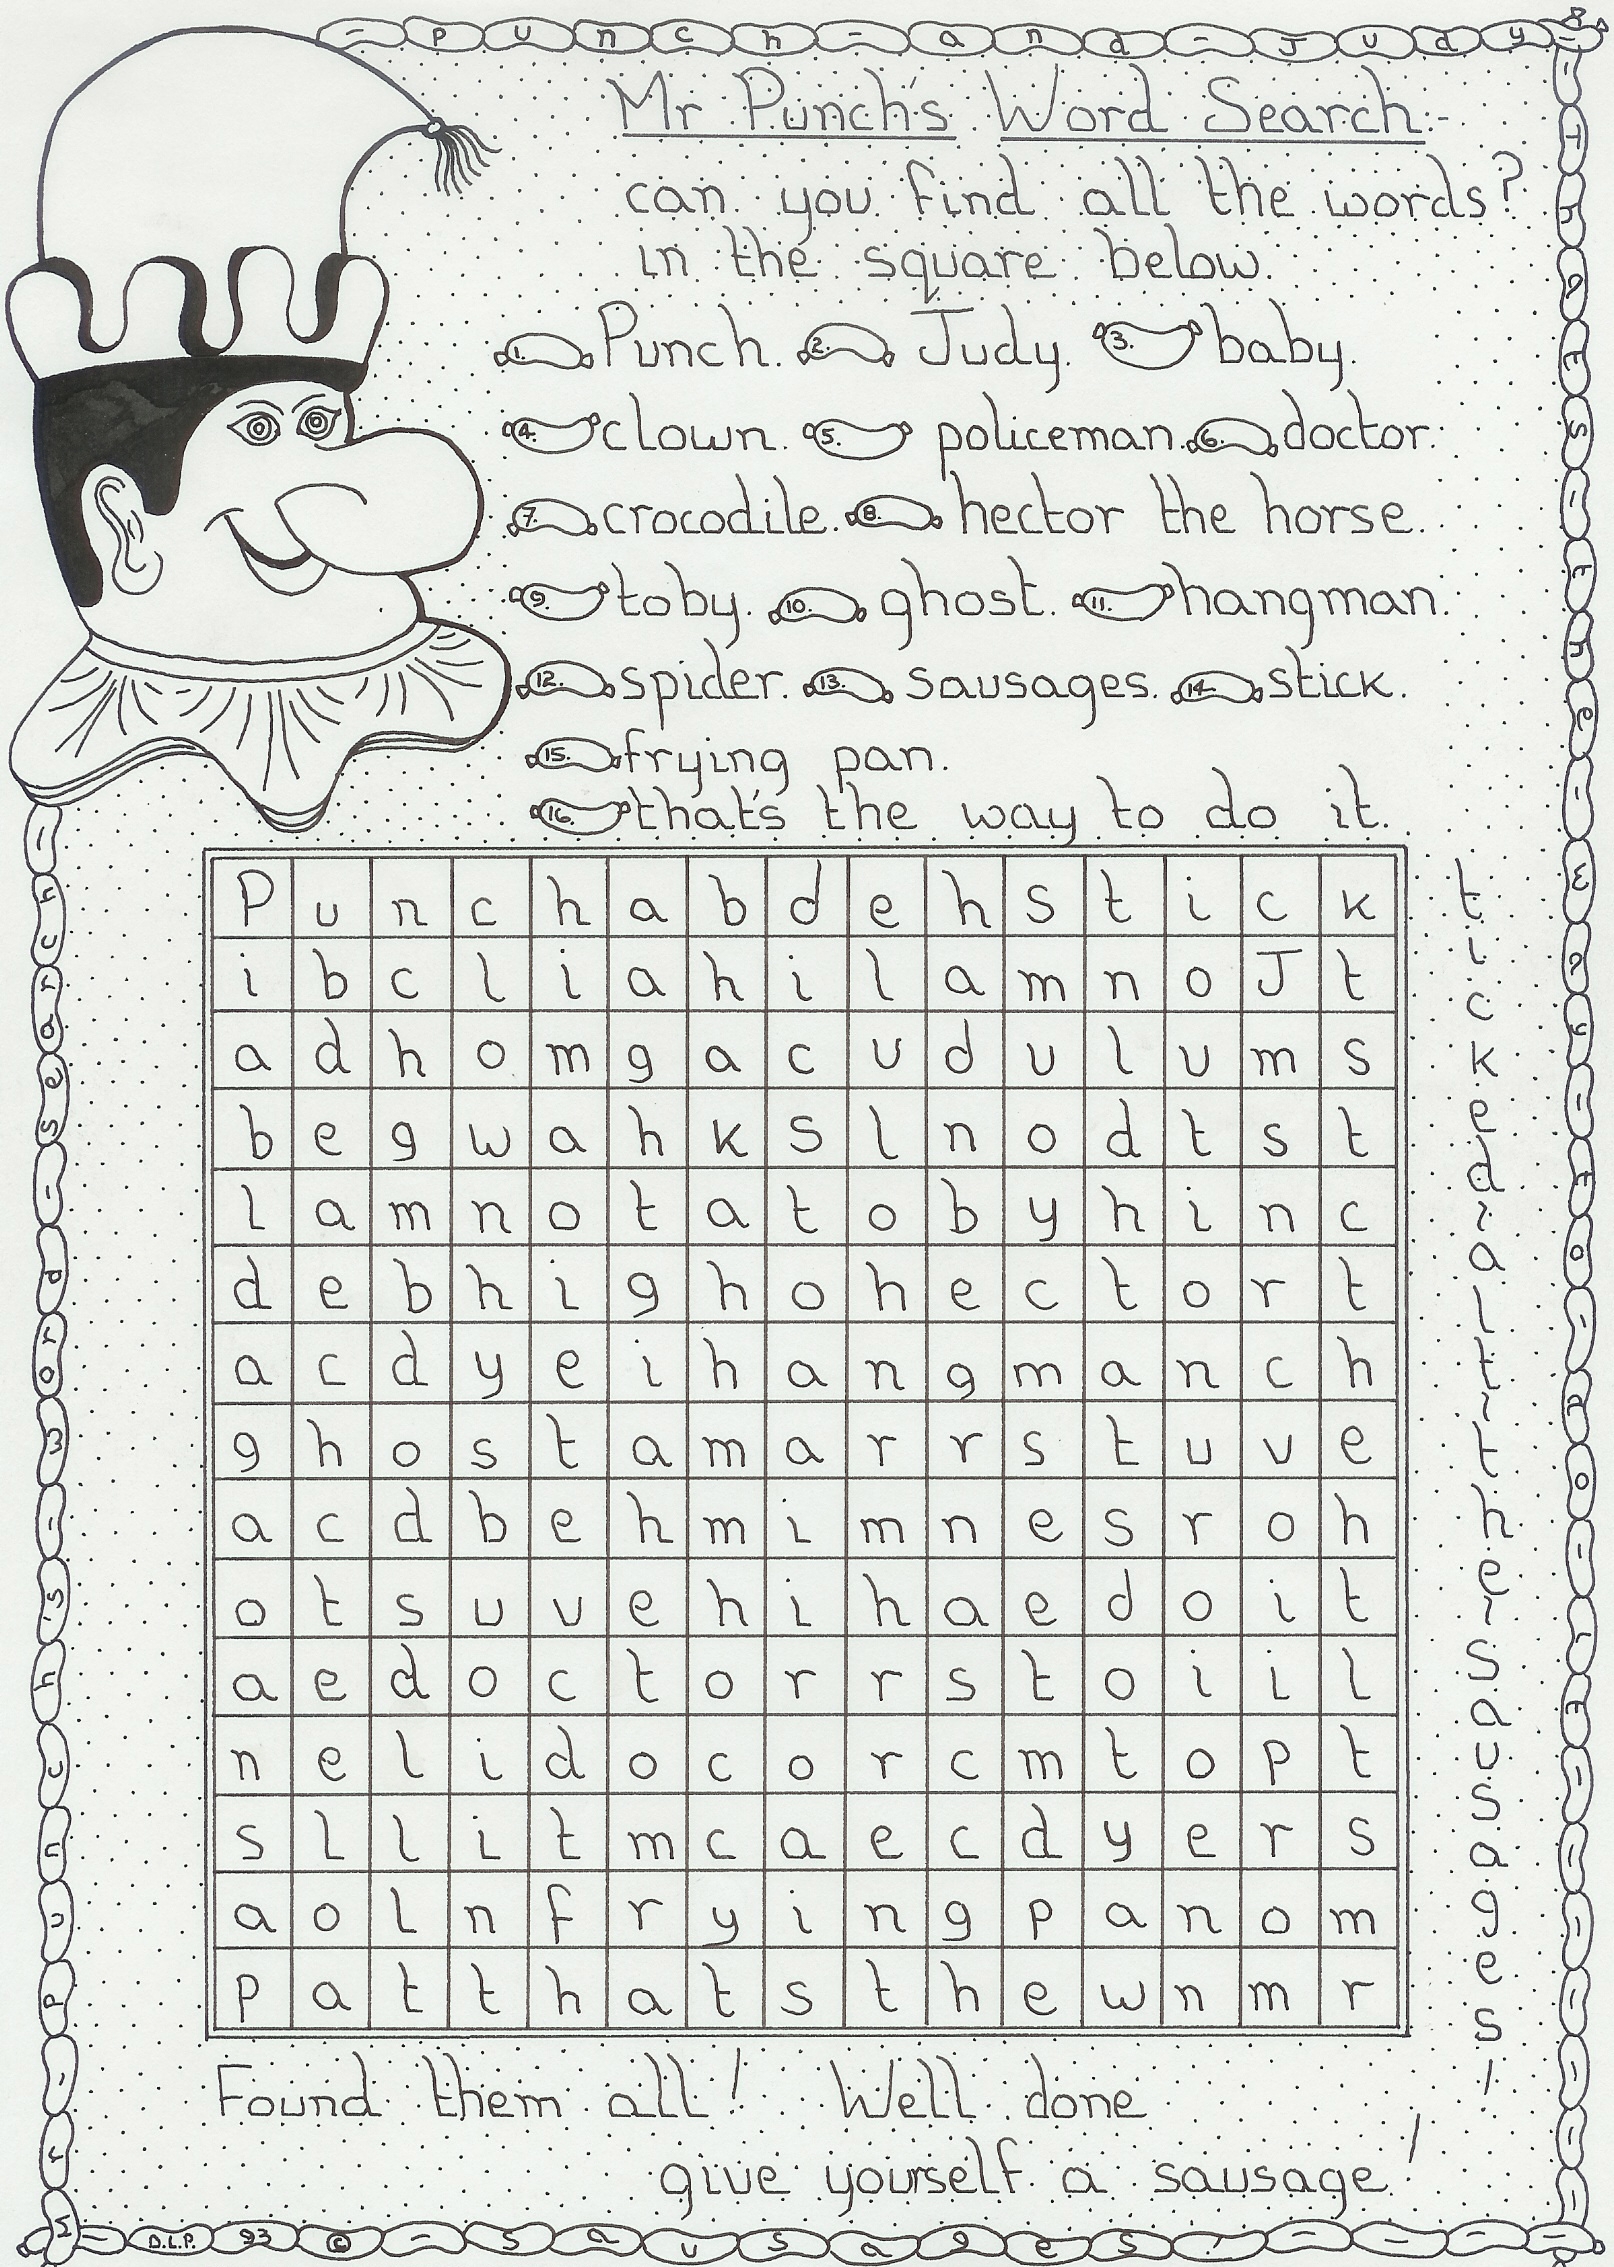 -punch-and-Judy-
Mr Punch's Word Search:-
can you find all the words?
in the square below.
1. Punch. 2. Judy. 3. baby.
4. clown. 5. policeman. 6. doctor.
7. crocodile. 8. hector the horse.
9. toby. 10. ghost. 11. hangman.
12. spider. 13. sausages. 14. stick.
15. frying pan.
16. that's the way to do it.
P u n c h a b d e h s t i c k
i b c l i a h i l a m n o J t
a d h o m g a c u d u l u m s
b e g w a h k s l n o d t s t
l a m n o t a t o b y h i n c
d e b h i g h o h e c t o r t
a c d y e i h a n g m a n c h
g h o s t a m a r r s t u v e
a c d b e h m i m n e s r o h
o t s u v e h i h a e d o i t
a e d o c t o r r s t o i i l
n e l i d o c o r c m t o p t
s l l i t m c a e c d y e r s
a o l n f r y i n g p a n o m
p a t t h a t s t h e w n m r
ticked~all~the~sausages!
Found them all! Well done
give yourself a sausage!
-That's-the-way-to-do-it-
Mr-Punch's-word-search-
D.L.P. 93 © -sausages!